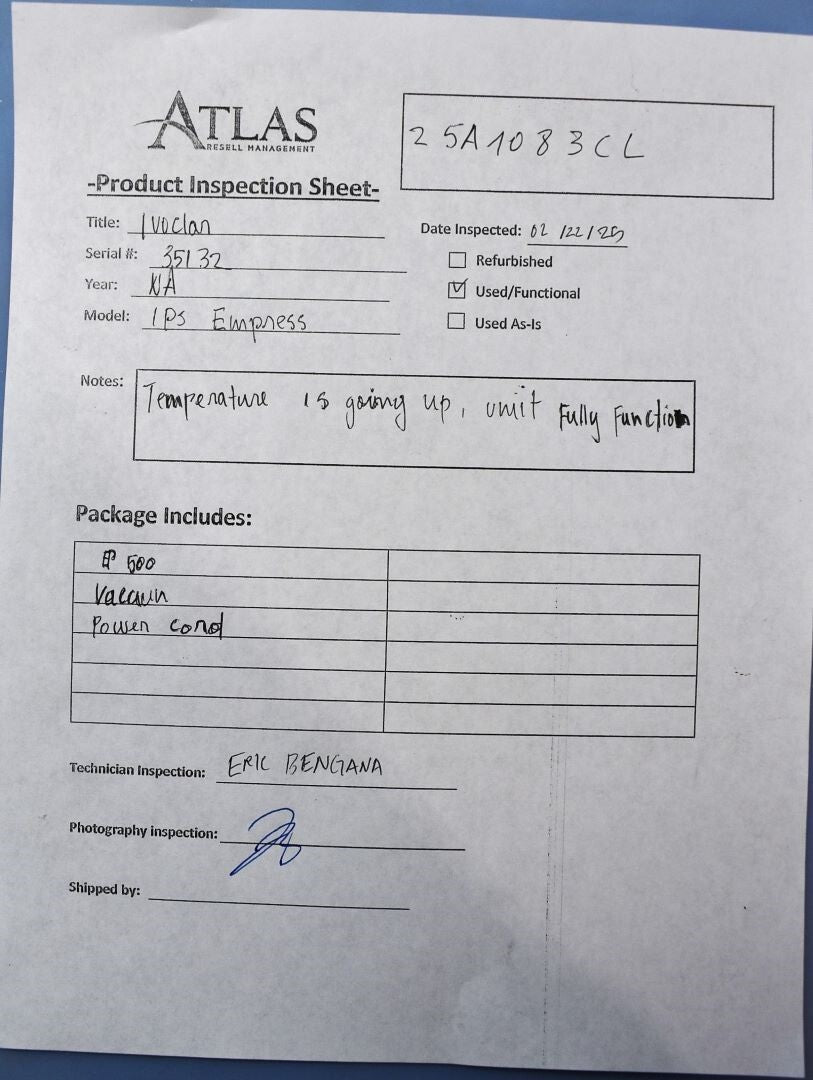 ATLAS
RESELL MANAGEMENT
25A1083CL
-Product Inspection Sheet-
Title: Ivoclar
Serial #: 35132
Year: NA
Model: IPS Empress
Date Inspected: 02/22/25
Refurbished
Used/Functional
Used As-Is
Notes: Temperature is going up, unit Fully Function
Package Includes:
EP 500
Vaccun
Power cord
Technician Inspection: ERIC BENGANA
Photography inspection:
Shipped by: